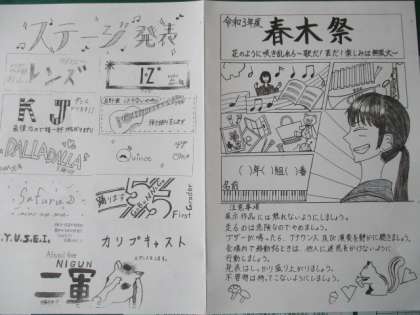 ステージ発表
レンズ
I-Z
KJ
DALLADALLA
Quince
Safari D
踊ります
55
First Grader
Y.U.S.E.I.
カリブキャスト
NIGUN
二軍
令和3年度
春木祭
花のように咲き乱れろ〜歌だ!言だ!楽しみは無限大〜
( )年( )組( )番
名前
注意事項
展示作品には触れないようにしましょう。
走るのは危険なのでやめましょう。
ブザーが鳴ったら、アナウンス及び演奏を静かに聴きましょう。
会場内で移動するときは、他人に迷惑をかけないように
行動しましょう。
発表はしっかり盛り上がりましょう。
不要物は持ってこないようにしましょう。